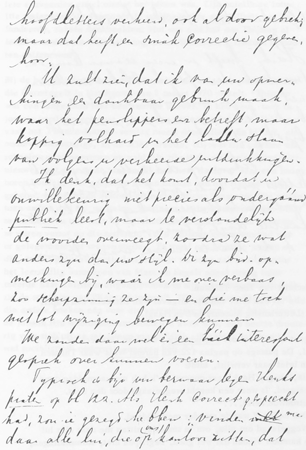 hoofdletters verkeerd, ook al door gebrek,
maar dat heeft een snák correctie gegeven,
hoor.
U zult zien, dat ik van uw opmer-
kingen een dankbaar gebruik maak,
waar het penslippers enz betreft, maar
koppig volhard in het laten staan
van volgens u verkeerde uitdrukkingen.
Ik denk, dat het komt, doordat u
onwillekeurig niet precies als ondergáánd
publiek leest, maar te verstandelijk
de woorden overweegt, zoodra ze wat
anders zijn dan uw stijl. Er zijn bid. op-
merkingen bij, waar ik me over verbaas,
zoo scherpzinnig ze zijn — en die me toch
niet tot wijziging bewegen kunnen.
We zouden daar wel es een héél interessant
gesprek over kunnen voeren.
Typisch is bijv. uw bezwaar tegen Henks
praten op bl. 142. Als Henk correct gesproken
had, zou ie gezegd hebben: "vinden ma-
daar alle lui, die op ons kantoor zitten, dat